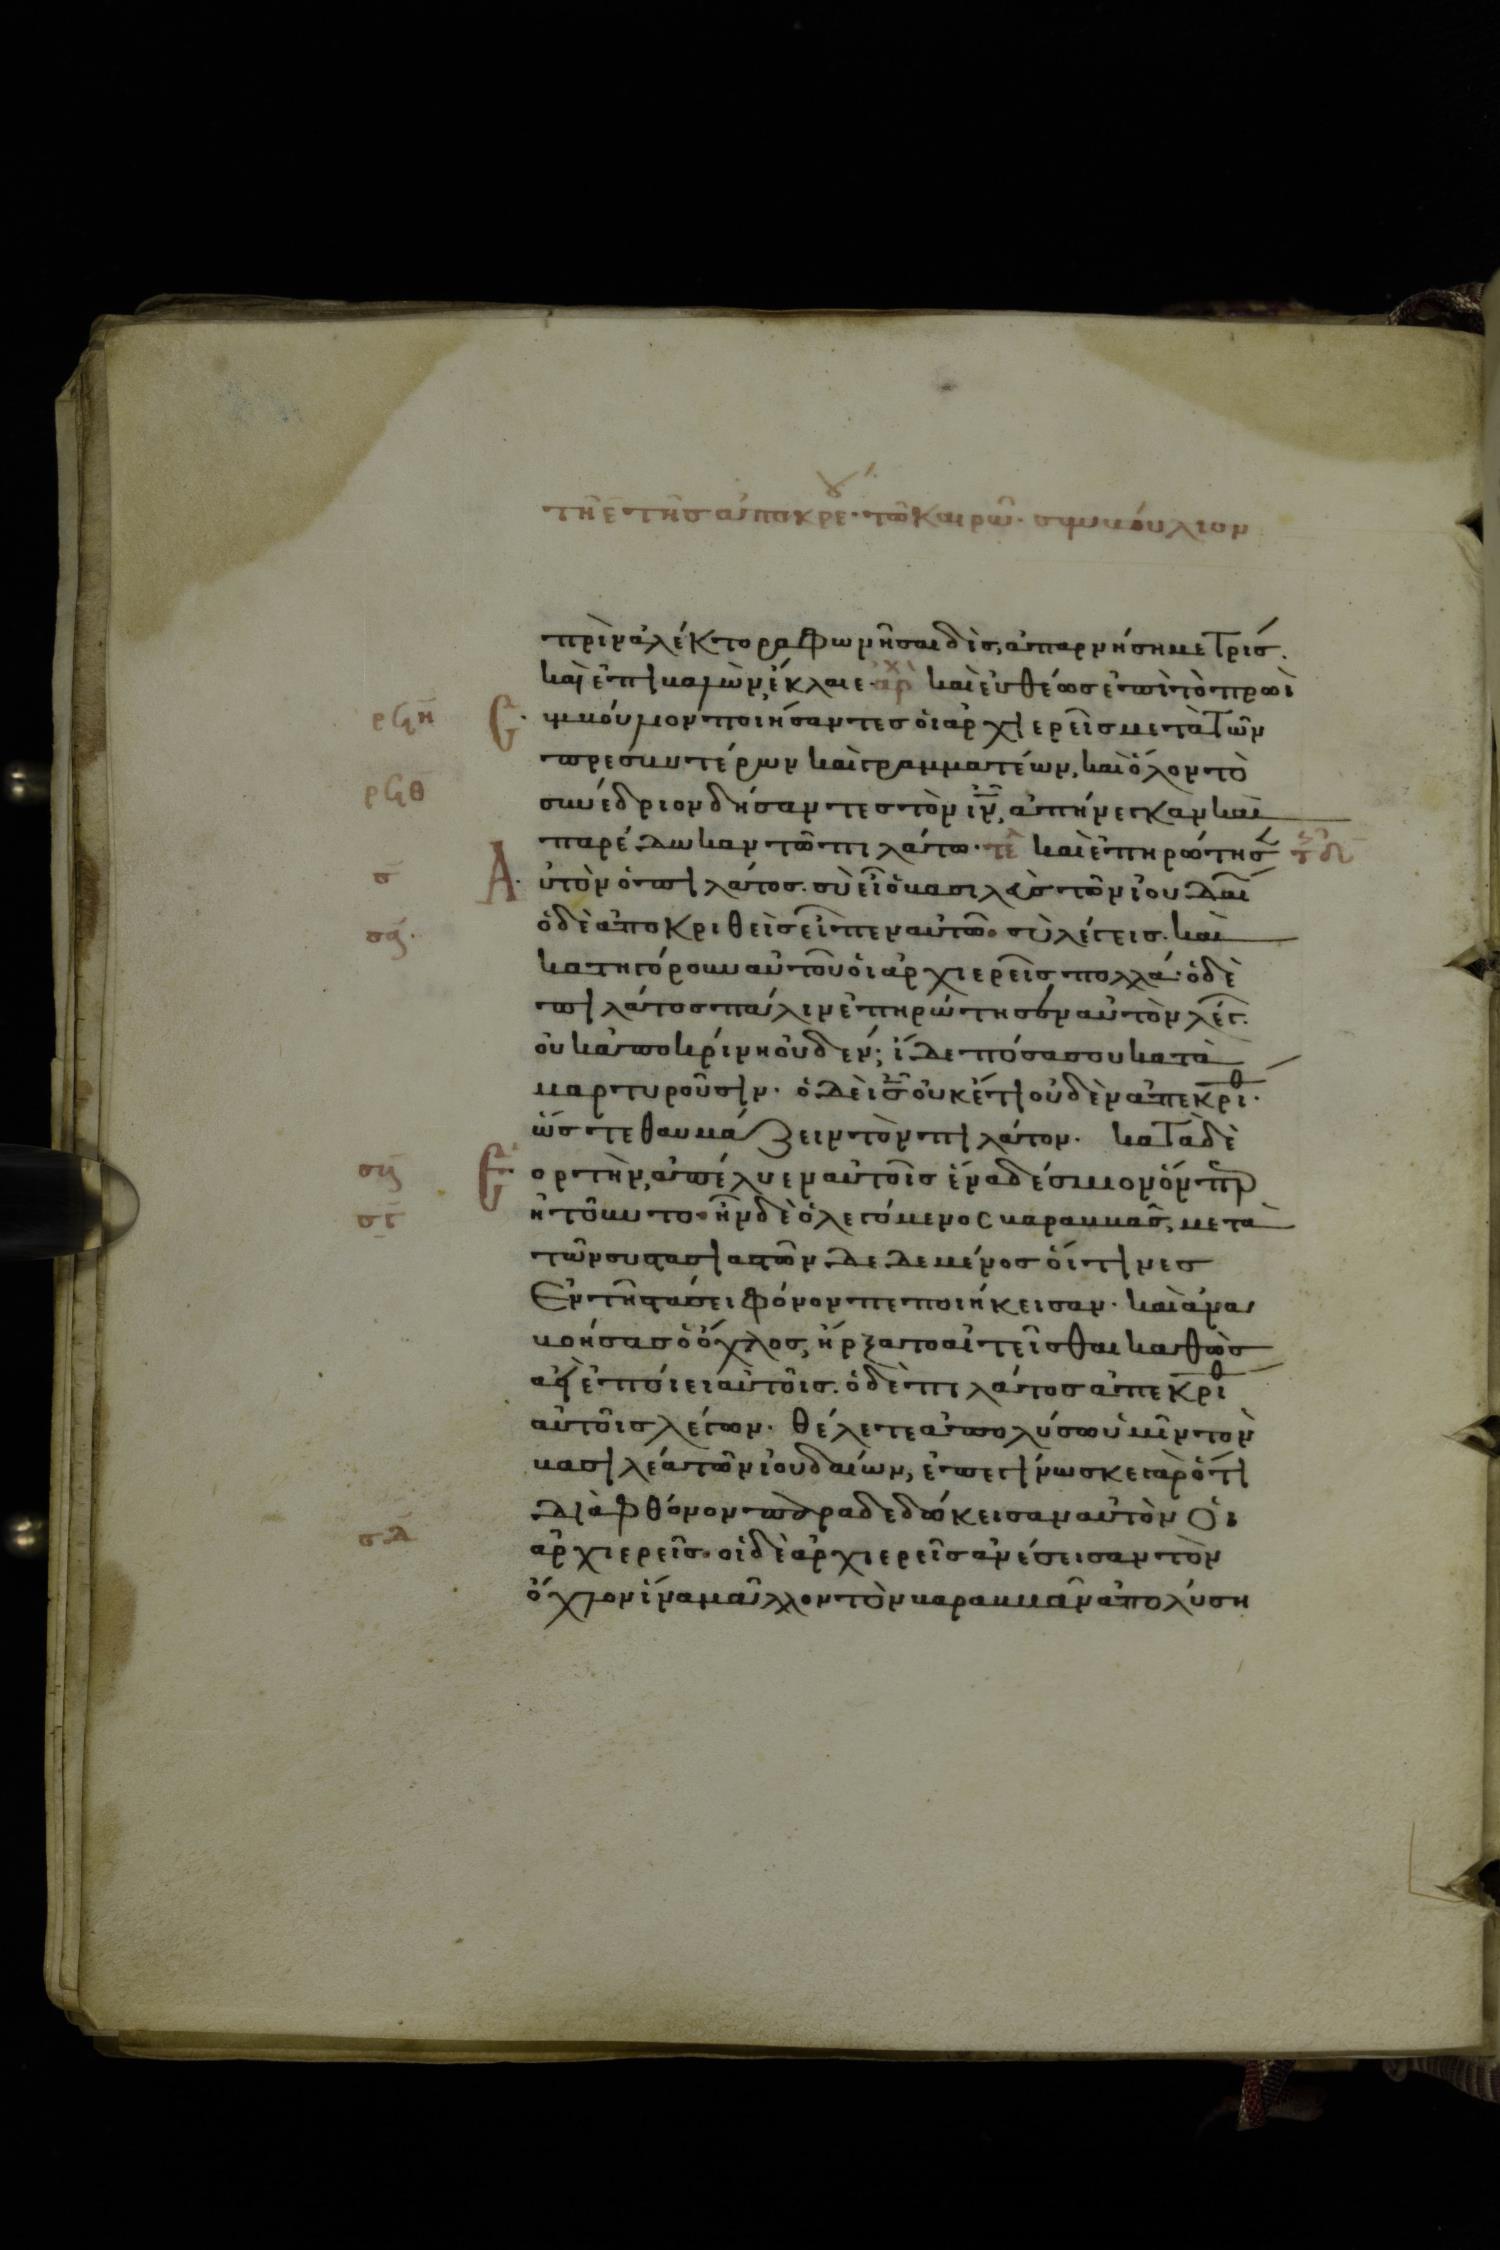 τῆ ε τῆς ἀποκρέ· τῶ καιρῶ· συμβούλιον
πρὶν ἀλέκτορα φωνῆσαι δὶς, ἀπαρνήσῃ με τρίς.
καὶ ἐπιβαλὼν, ἔκλαιε· ἀρχ καὶ εὐθέως ἐπὶ τὸ πρωῒ
ρϟη Ϲ· υμβούλιον ποιήσαντες οἱ ἀρχιερεῖς μετὰ τῶν
πρεσβυτέρων καὶ γραμματέων, καὶ ὅλον τὸ
ρϟθ συνέδριον δήσαντες τὸν ιν, ἀπήνεγκαν καὶ
παρέδωκαν τῶ πιλάτω· τε καὶ ἐπηρώτησ
σ Α· ὐτὸν ὁ πιλάτος. σὺ εἶ ὁ βασιλεὺς τῶν ἰουδαι
σα· ὁ δὲ ἀποκριθεὶς εἶπεν αὐτῶ· σὺ λέγεις. καὶ
κατηγόρουν αὐτοῦ οἱ ἀρχιερεῖς πολλά· ὁ δὲ
πιλάτος πάλιν ἐπηρώτησεν αὐτὸν λέγ.
οὐκ ἀποκρίνη οὐδέν; ἴδε πόσα σου κατα
μαρτυροῦσιν· ὁ δὲ ις οὐκέτι οὐδὲν ἀπεκριθ·
ὥστε θαυμάζειν τὸν πιλάτον· κατὰ δὲ
σβ Ε· ορτὴν, ἀπέλυεν αὐτοῖς ἕνα δέσμιον ὅνπερ
σγ ἠτοῦντο· ἦν δὲ ὁ λεγόμενος βαραββᾶς, μετὰ
τῶν συστασιαστῶν δεδεμένος οἵτινες
ἐν τῆ στάσει φόνον πεποιήκεισαν· καὶ ἀνα
βοήσας ὁ ὄχλος, ἤρξατο αἰτεῖσθαι καθὼς
ἀεὶ ἐποίει αὐτοῖς. ὁ δὲ πιλάτος ἀπεκριθ
αὐτοῖς λέγων· θέλετε ἀπολύσω ὑμῖν τὸν
βασιλέα τῶν ἰουδαίων, ἐγίνωσκε γὰρ ὅτι
διὰ φθόνον παραδεδώκεισαν αὐτὸν οἱ
σδ ἀρχιερεῖς· οἱ δὲ ἀρχιερεῖς ἀνέσεισαν τὸν
ὄχλον ἵνα μᾶλλον τὸν βαραββᾶν ἀπολύση